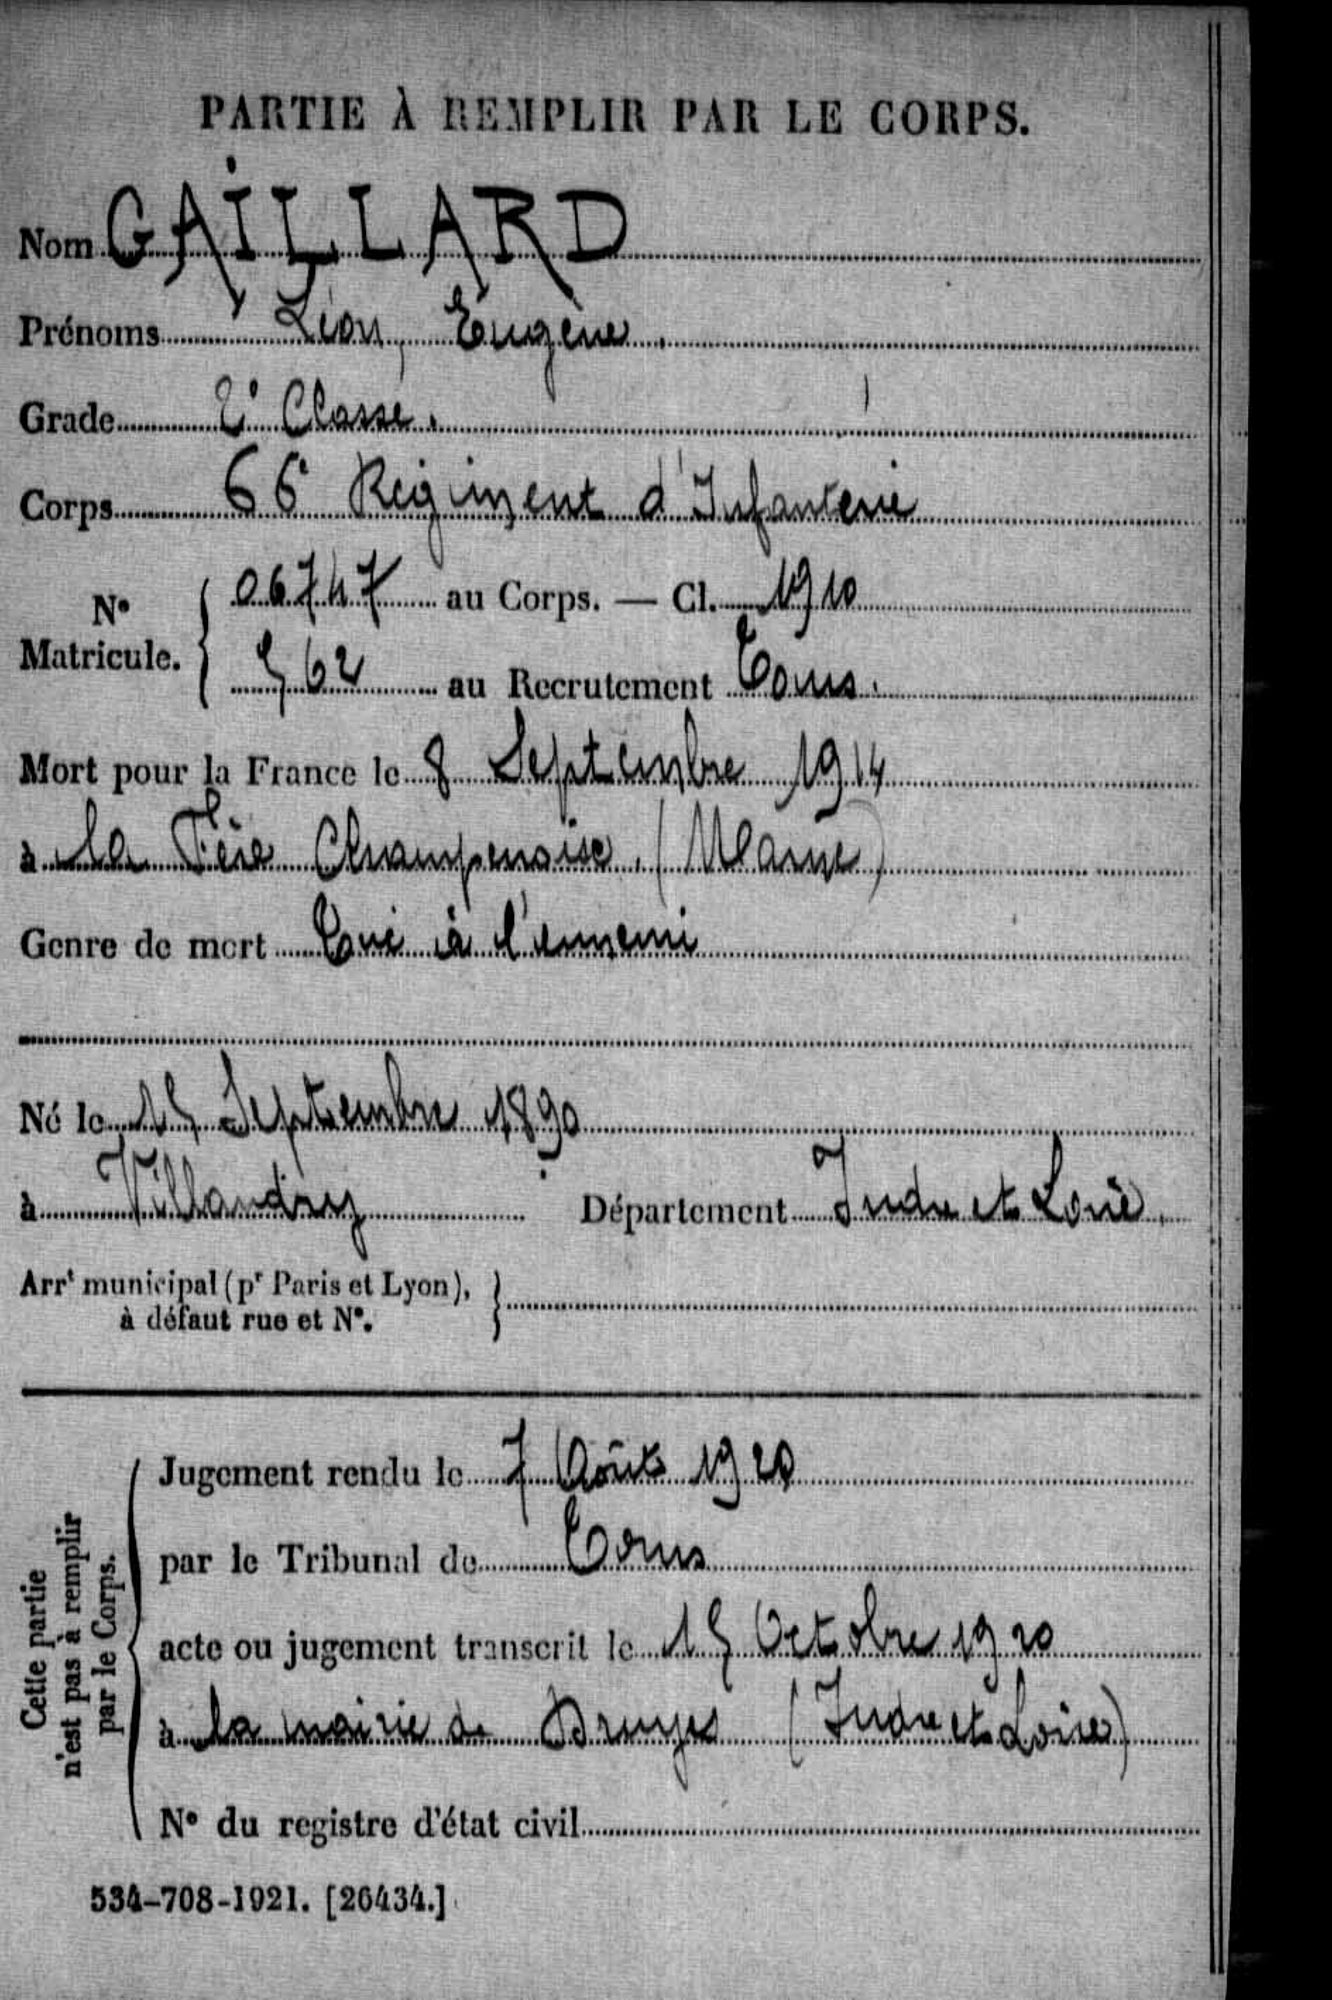 PARTIE À REMPLIR PAR LE CORPS.
Nom GAILLARD
Prénoms Léon, Eugène.
Grade 2e Classe.
Corps 66e Régiment d'Infanterie
No Matricule. { 06747 au Corps. — Cl. 1910
562 au Recrutement Tours.
Mort pour la France le 8 Septembre 1914
à la Fère Champenoise. (Marne)
Genre de mort Tué à l'ennemi
Né le 15 Septembre 1890
à Villandry Département Indre et Loire.
Arrt municipal (pr Paris et Lyon), }
à défaut rue et No.
Cette partie
n'est pas à remplir
par le Corps.
Jugement rendu le 7 Août 1920
par le Tribunal de Tours
acte ou jugement transcrit le 15 Octobre 1920
à la mairie de Druyes (Indre et Loire)
No du registre d'état civil
534-708-1921. [26434.]